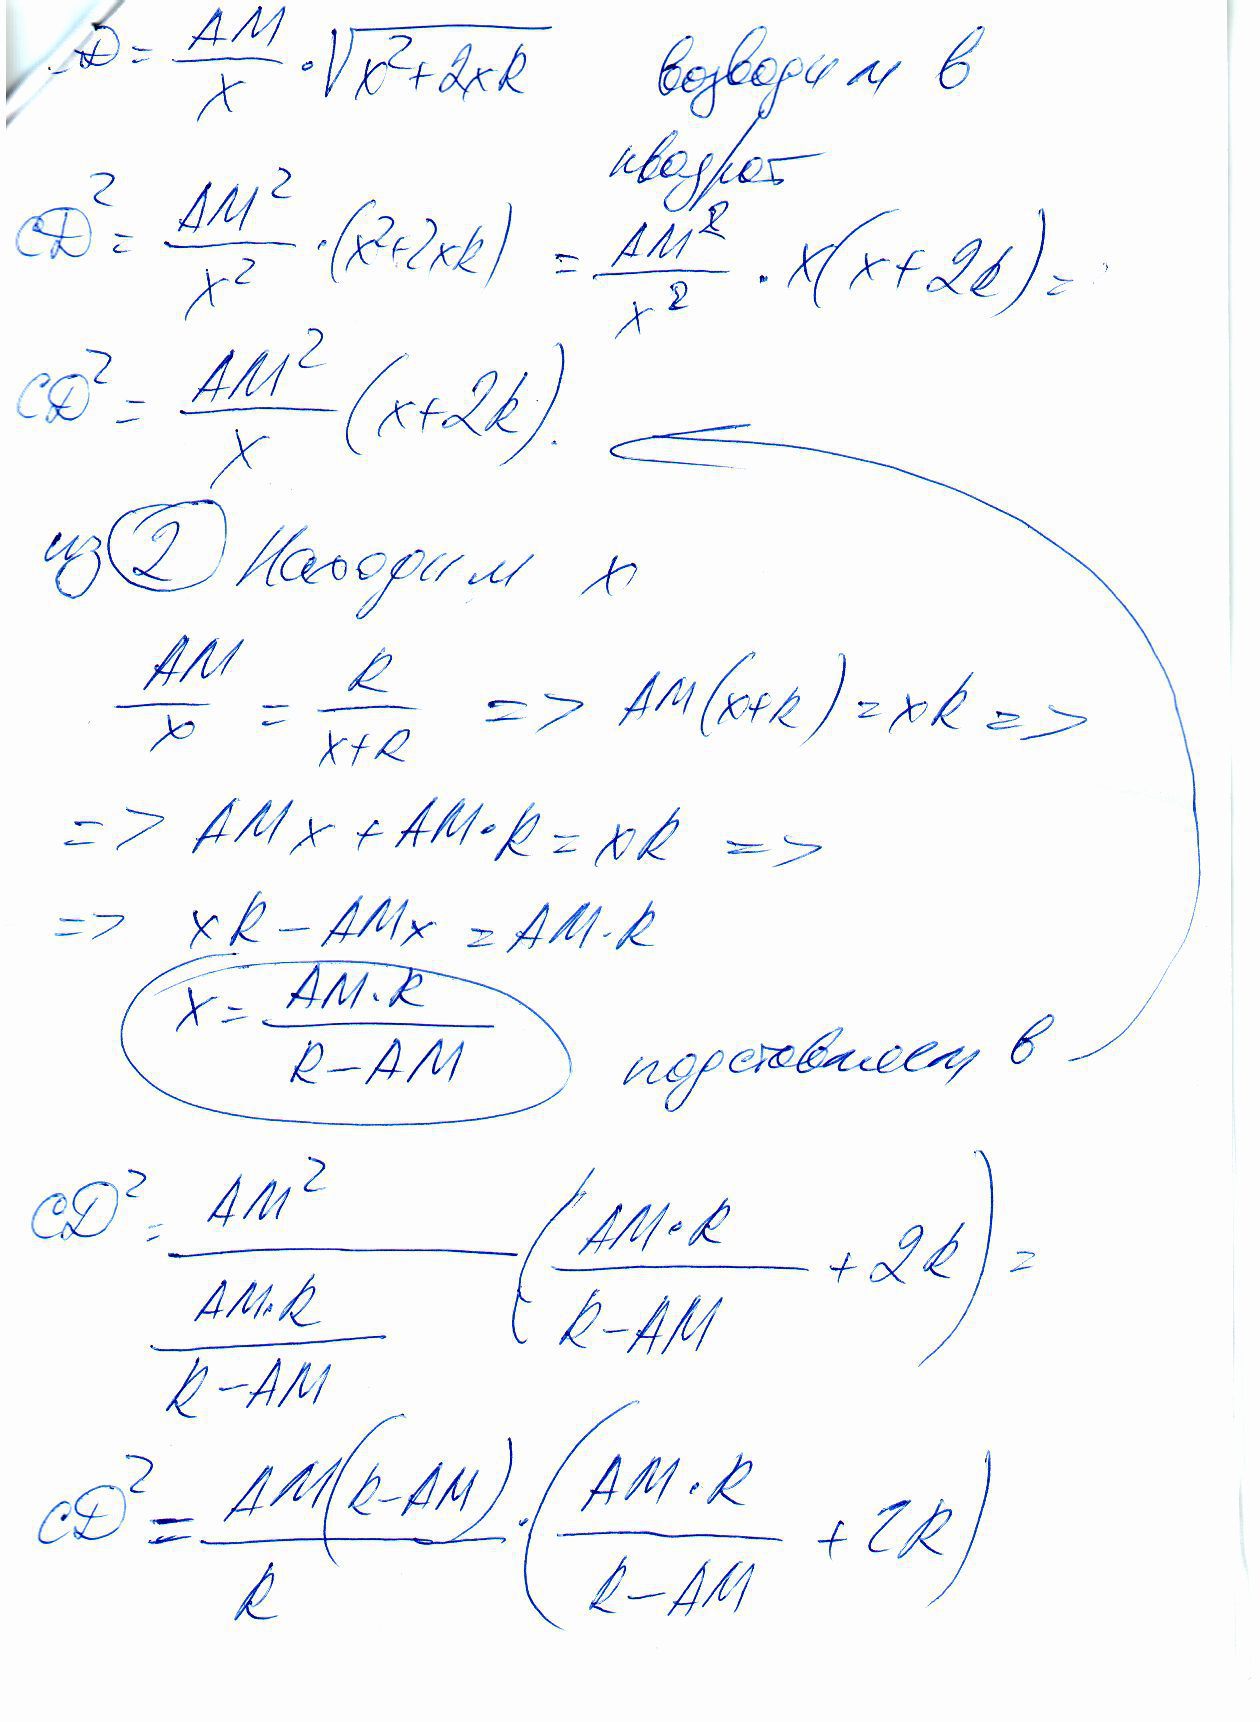 D = AM/x · √(x²+2xR) возводим в
квадрат
CD² = AM²/x² · (x²+2xR) = AM²/x² · x(x+2R) =
CD² = AM²/x (x+2R).
из (2) Находим x
AM/x = R/(x+R) => AM(x+R) = xR =>
=> AMx + AM·R = xR =>
=> xR − AMx = AM·R
x = AM·R/(R−AM) подставляем в
CD² = AM²/(AM·R/(R−AM)) (AM·R/(R−AM) + 2R) =
CD² = AM(R−AM)/R · (AM·R/(R−AM) + 2R)